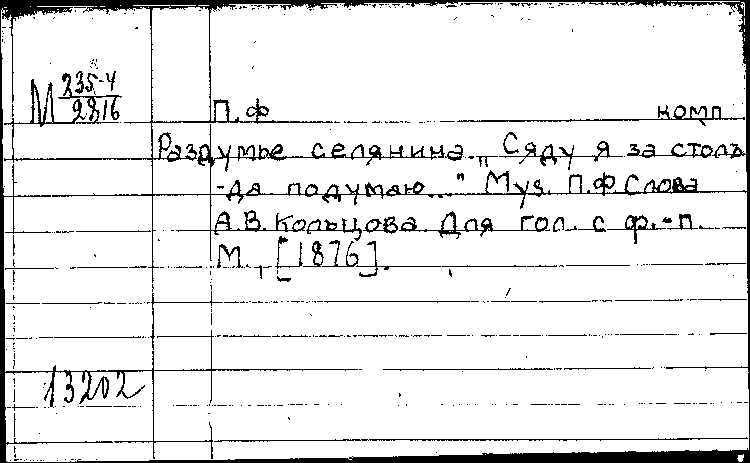 М 235-4
2816
П. Ф комп
Раздумье селянина. „Сяду я за столъ
-да подумаю..." Муз. П.Ф Слова
А.В. Кольцова. Для гол. с ф.-п.
М., [1876].
13202